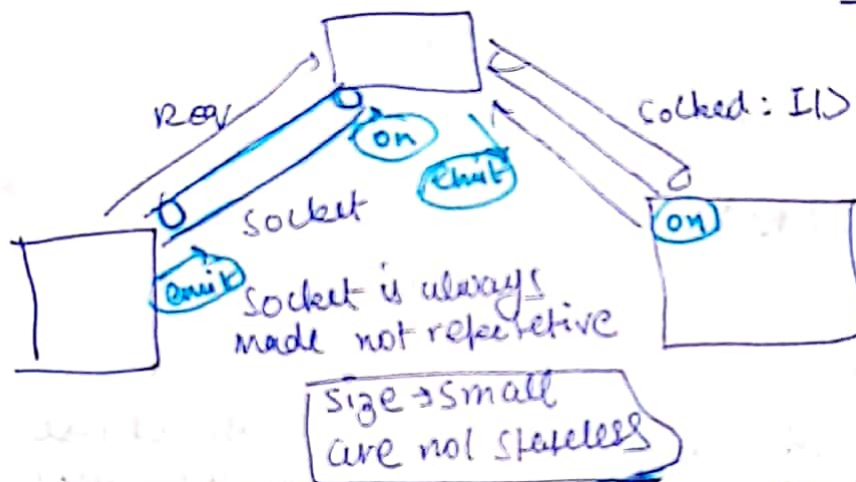 Req
on
Socked: ID
emit
on
Socket
emit
Socket is always
made not repetetive
Size → small
are not stateless